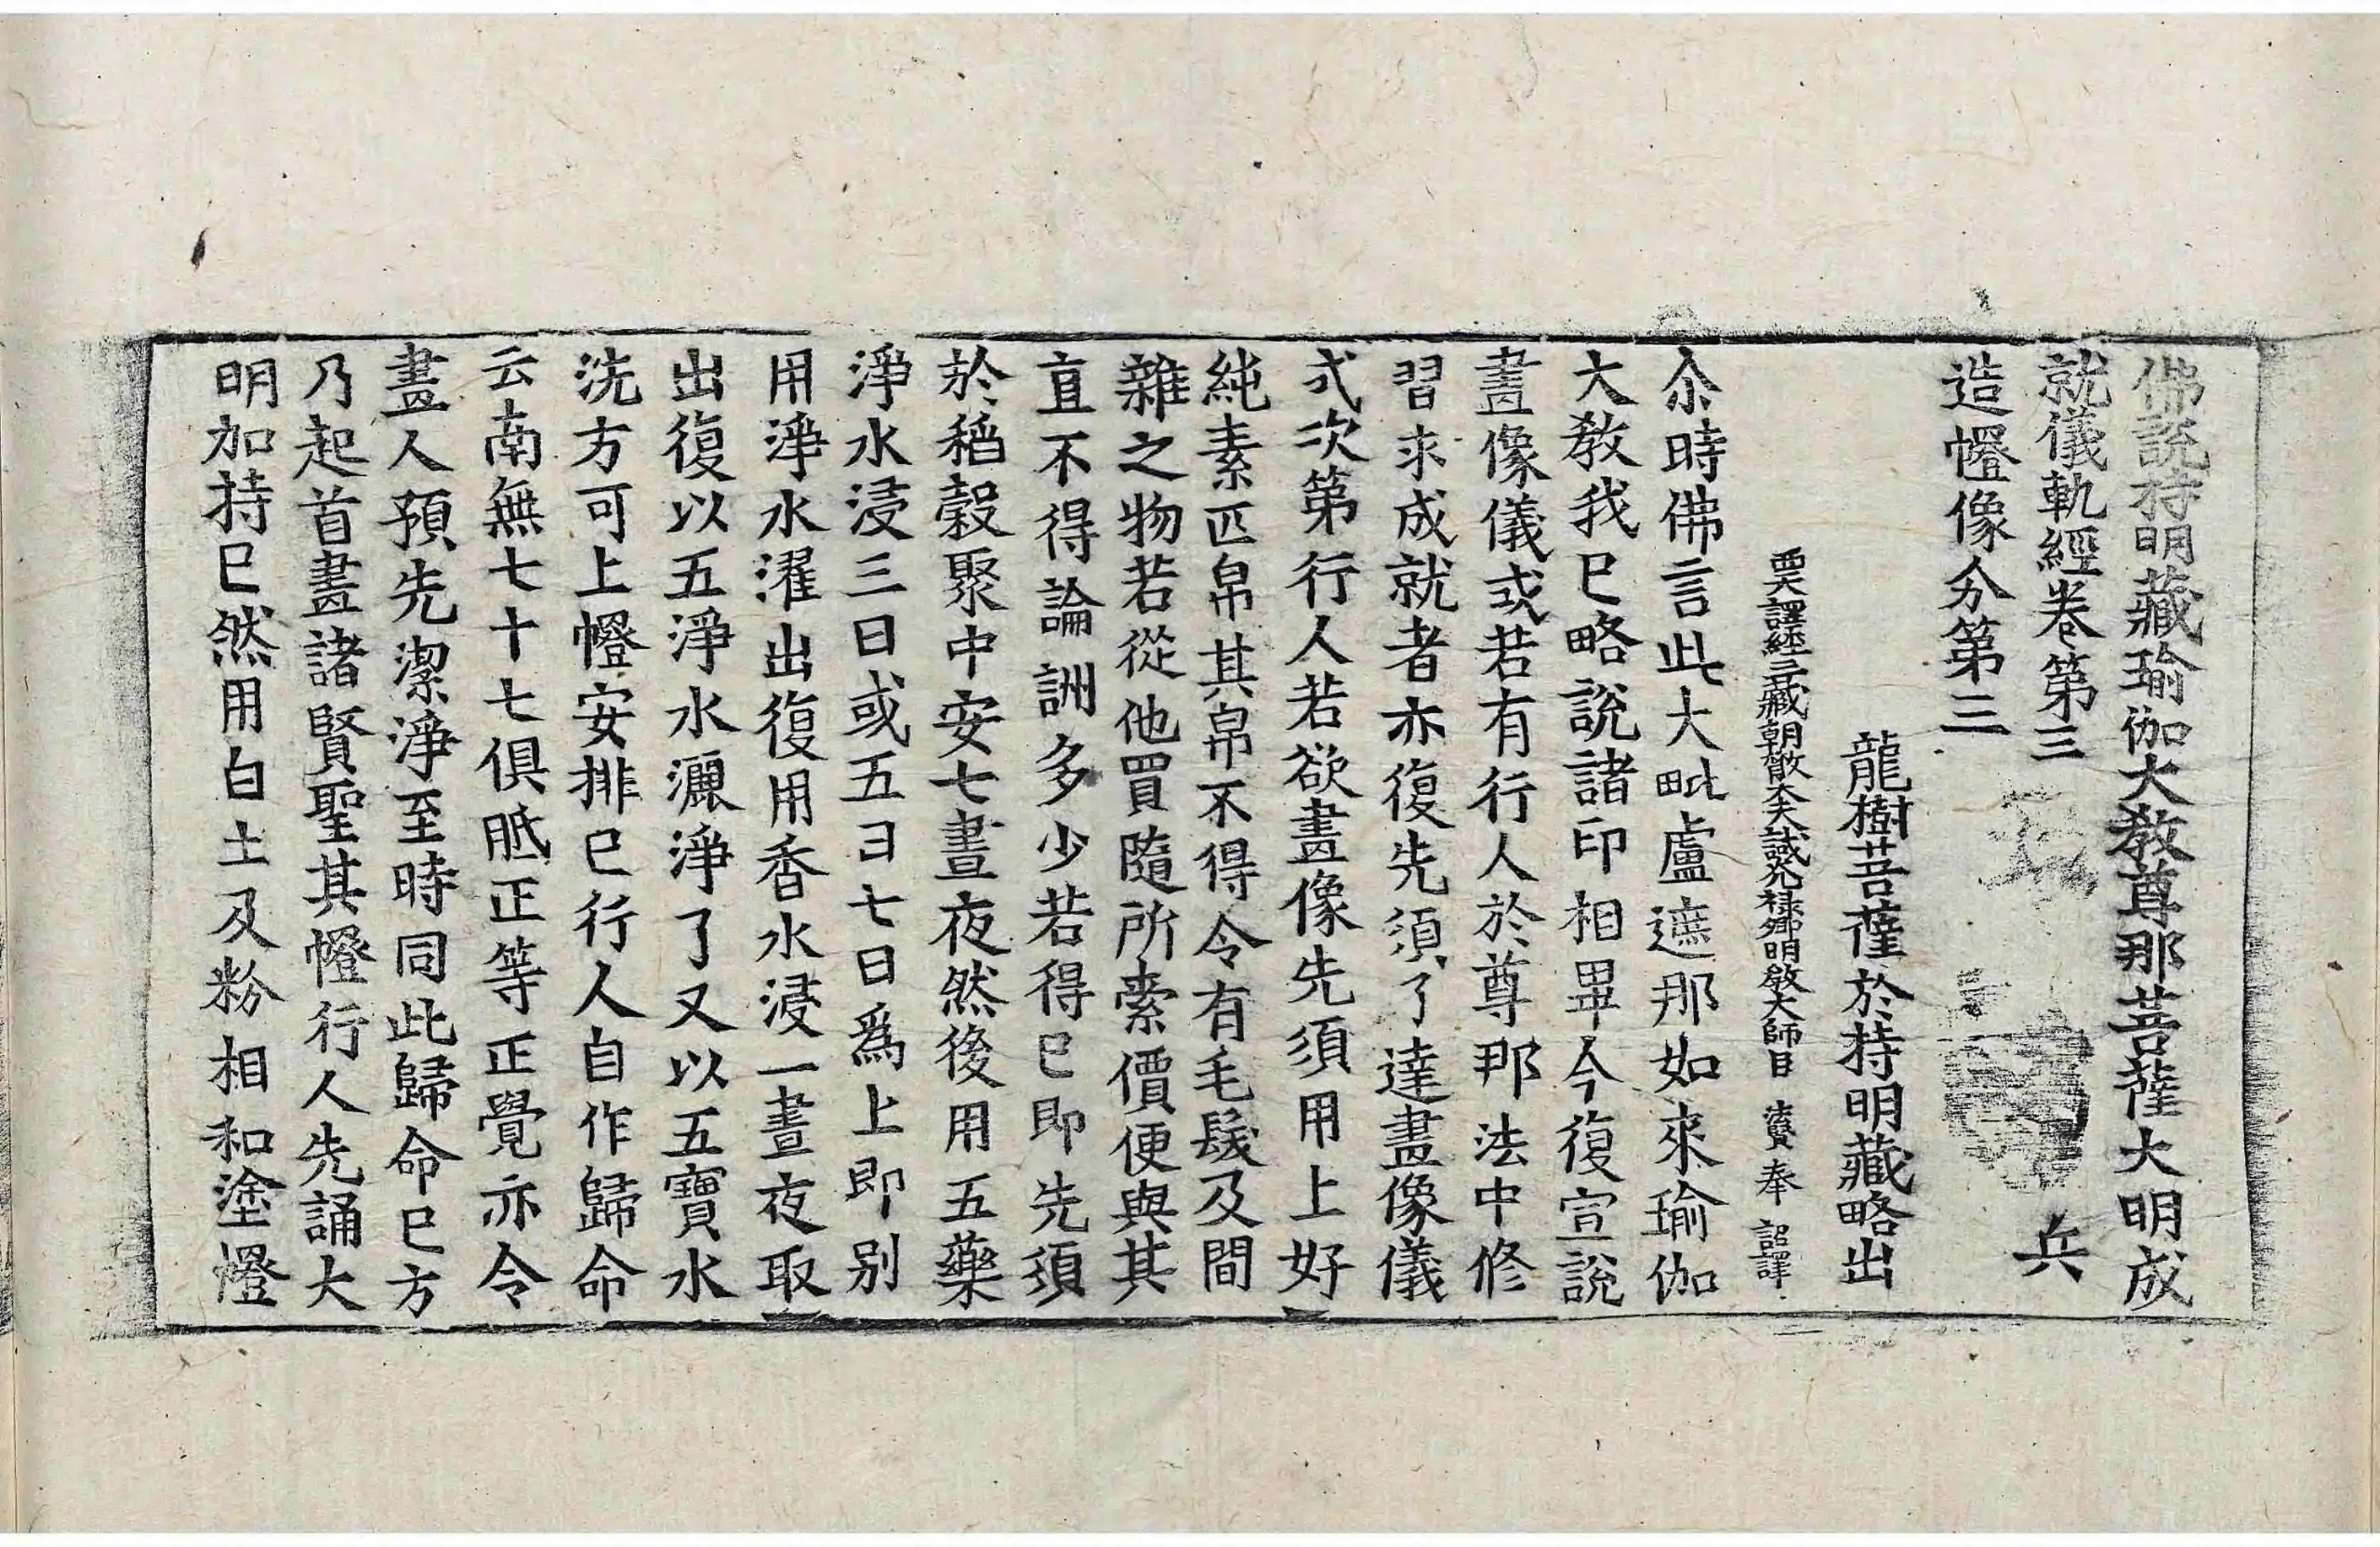 佛說持明藏瑜伽大教尊那菩薩大明成
就儀軌經卷第三 兵
造㡧像分第三
龍樹菩薩於持明藏略出
西天譯經三藏朝散大夫試光祿卿明教大師臣 法賢 奉 詔譯
尒時佛言此大毗盧遮那如來瑜伽
大教我已略說諸印相畢今復宣說
畫像儀或若有行人於尊那法中修
習求成就者亦復先須了達畫像儀
式次第行人若欲畫像先須用上好
純素匹帛其帛不得令有毛髮及間
雜之物若從他買隨所索價便與其
直不得論詶多少若得已即先須
於稻穀聚中安七晝夜然後用五藥
淨水浸三日或五日七日爲上即別
用淨水濯出復用香水浸一晝夜取
出復以五淨水灑淨了又以五寶水
洗方可上㡧安排已行人自作歸命
云南無七十七俱胝正等正覺亦令
畫人預先潔淨至時同此歸命已方
乃起首畫諸賢聖其㡧行人先誦大
明加持已然用白土及粉相和塗㡧